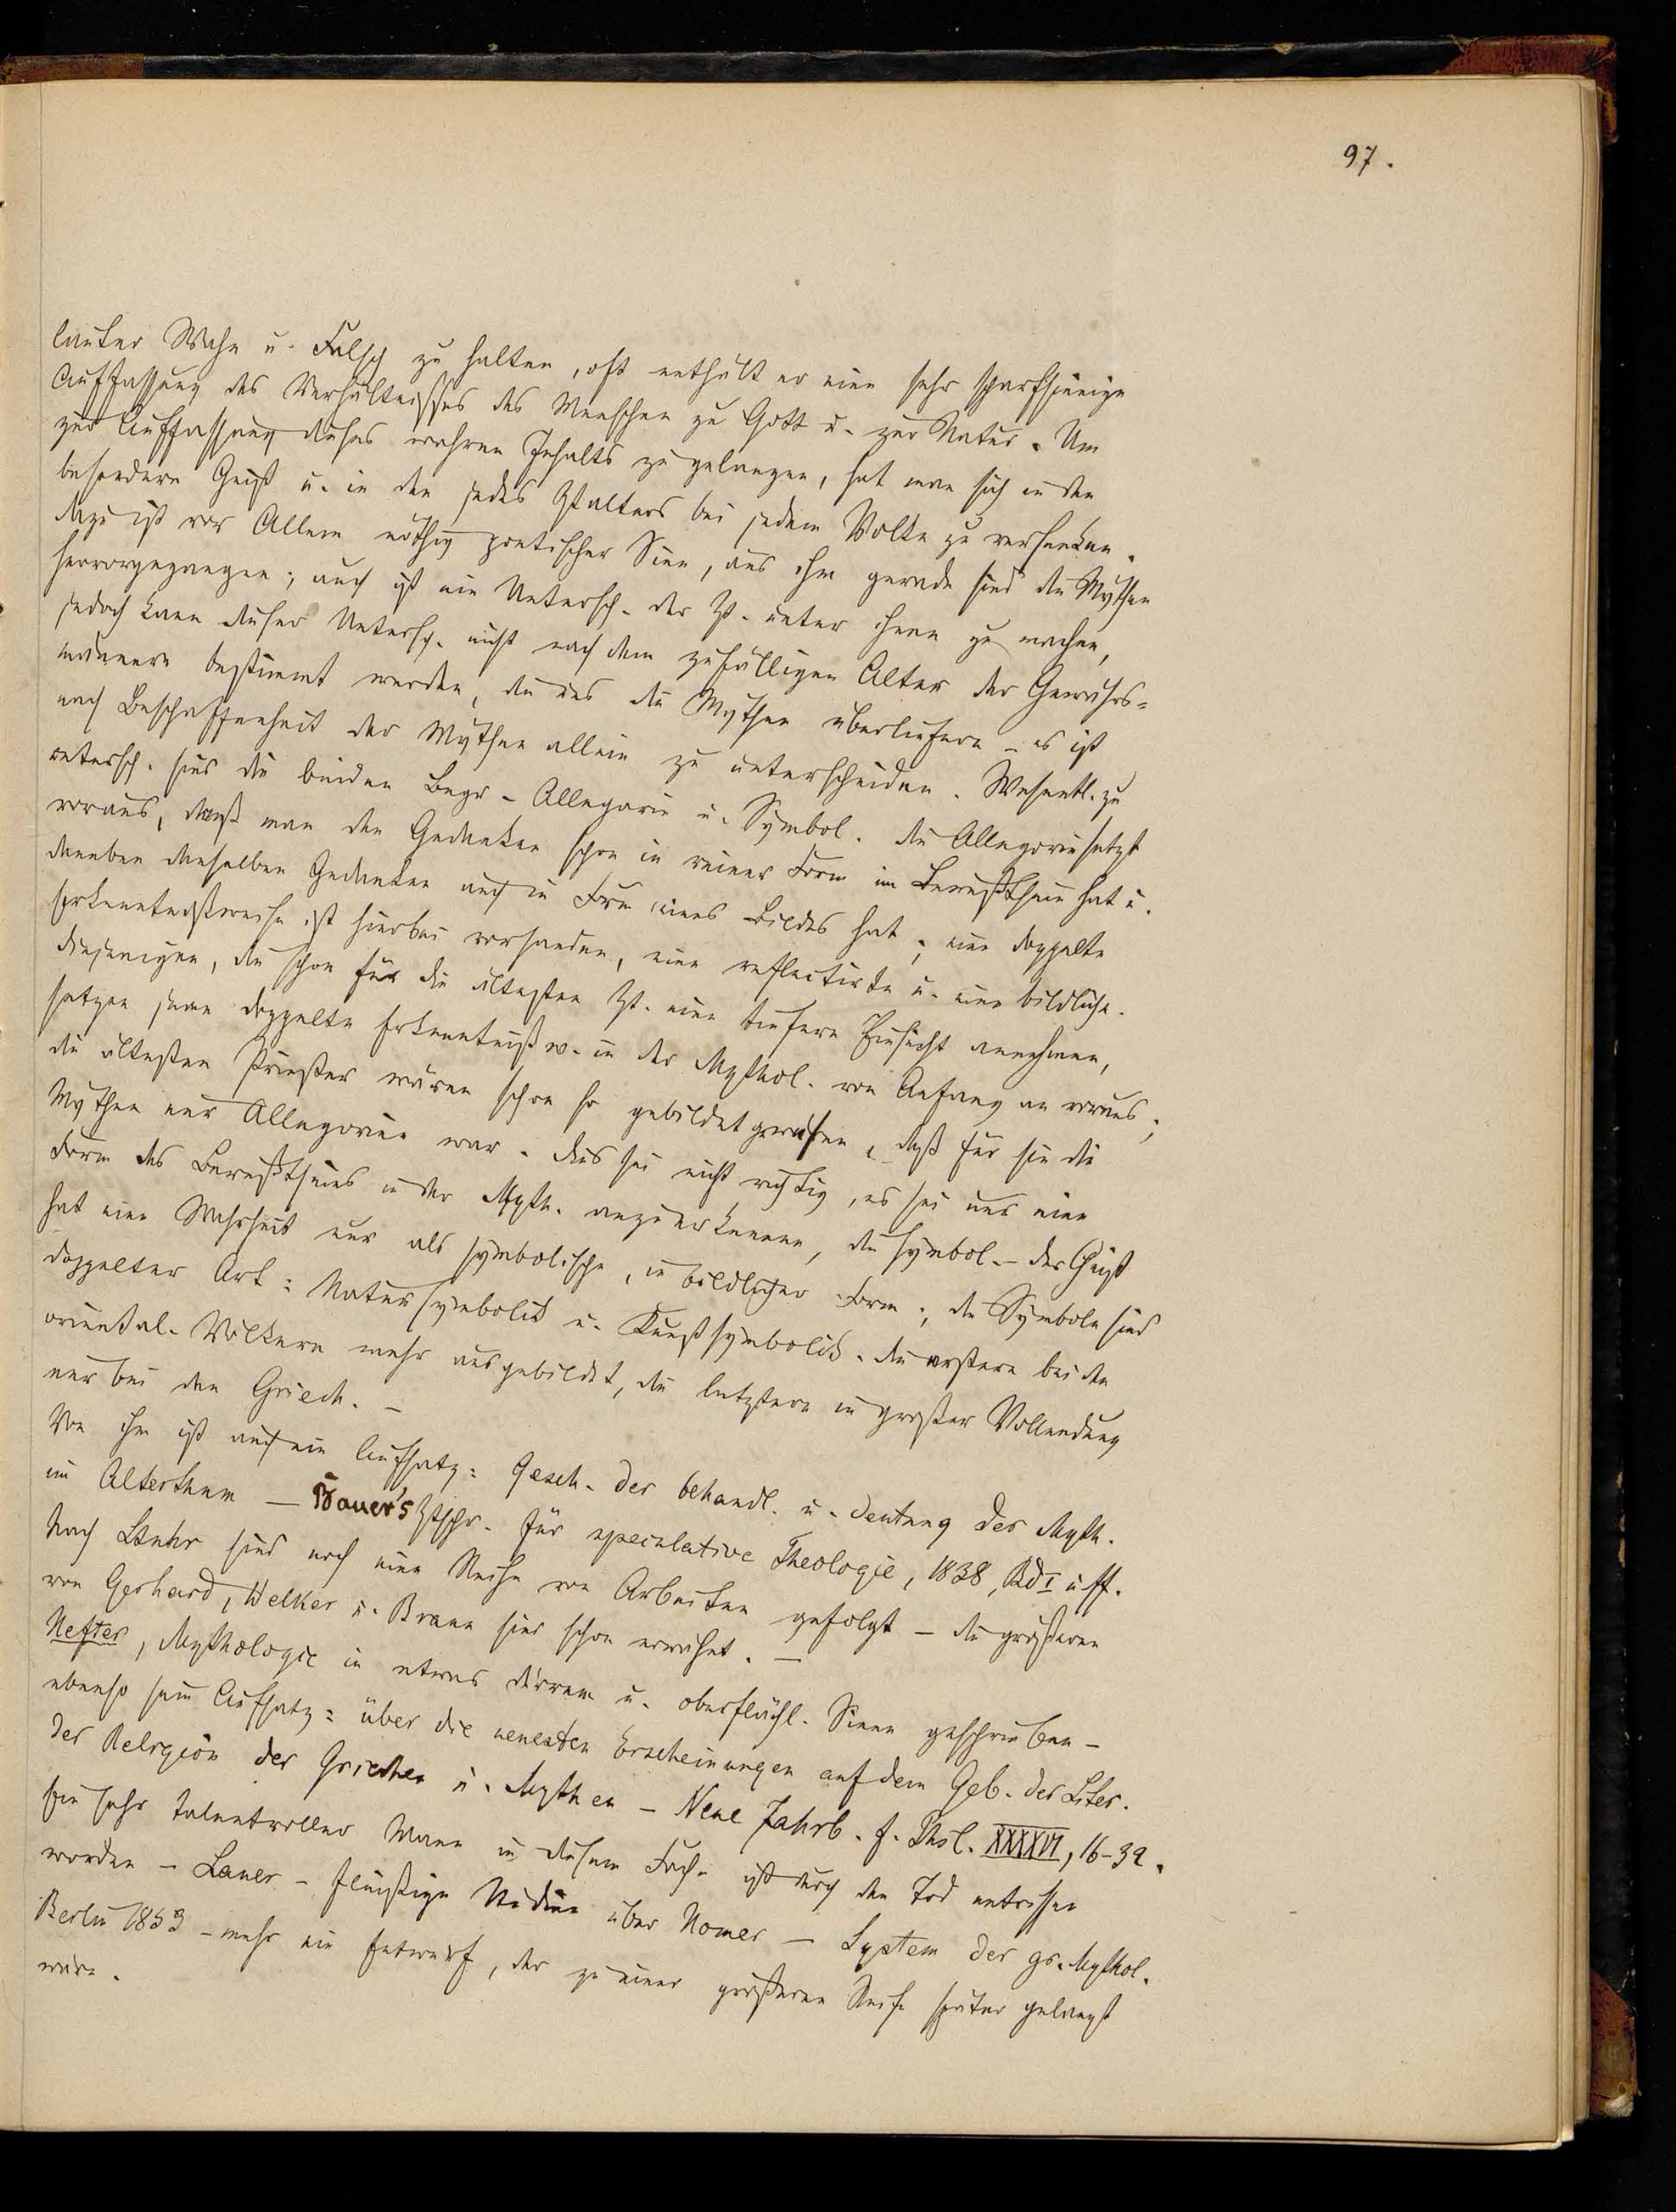 97.
lauter Wahn u. Falsch zu halten, oft enthält er eine sehr scharfsinnige
Auffassung des Verhältnisses des Menschen zu Gott u. zur Natur. Um
zur Auffassung dieses wahren Inhalts zu gelangen, hat man sich in den
besondern Geist u. in den jedes Ztalters bei jedem Volke zu versenken.
dazu ist vor Allem nöthig poetischer Sinn, aus ihm gerade sind die Mythen
hervorgegangen; auch ist ein Untersch. der Zt. unter ihnen zu machen,
jedoch kann dieser Untersch. nicht nach dem zufälligen Alter der Gewährs-
männern bestimmt werden, die uns die Mythen überliefern – es ist
nach Beschaffenheit der Mythen allein zu unterscheiden. Wesentl. zu
untersch. sind die beiden Begr. Allegorie u. Symbol. die Allegorie setzt
voraus, daß man den Gedanken schon in reiner Form im Bewußtsein hat u.
daneben denselben Gedanken auch in Form eines Bildes hat; eine doppelte
Erkenntnißweise ist hierbei vorhanden, eine reflectirte u. eine bildliche.
diejenigen, die schon für die ältesten Zt. eine tiefere Einsicht annehmen,
setzen jene doppelte Erkenntnißw. in der Mythol. von Anfang an voraus;
die ältesten Priester wären schon so gebildet gewesen, daß für sie die
Mythen nur Allegorien war. dies sei nicht richtig, es sei nur eine
Form des Bewußtseins in der Myth. anzuerkennen, die symbol. – der Geist
hat eine Wahrheit nur als symbolische, in bildlicher Form; die Symbole sind
doppelter Art: Natursymbolik u. Kunstsymbolik. die erstere bei den
oriental. Völkern mehr ausgebildet, die letztere in großer Vollendung
nur bei den Griech. –
Von ihm ist auch ein Aufsatz: Gesch. der behandl. u. deutung der Myth.
im Alterthum – Bauer's Ztschr. für speculative Theologie, 1838, Bd I u ff.
Nach Stuhr sind noch eine Reihe von Arbeiten gefolgt – die größeren
von Gerhard, Welker u. Braun sind schon erwähnt. –
Hefter, Mythologie in etwas dürrem u. oberflächl. Sinne geschrieben –
ebenso sein Aufsatz: über die neuesten Erscheinungen auf dem Geb. der Liter.
der Religion der Griechen u. Mythen – Neue Jahrb. f. Phil. XXXXVI, 16-32.
Ein sehr talentvoller Mann in diesem Fache ist durch den Tod entrissen
worden – Lauer – fleißige Studien über Homer – System der gr. Mythol.
Berlin 1853 – mehr ein Entwurf, der zu einer größeren Reife später gelangt
wäre.